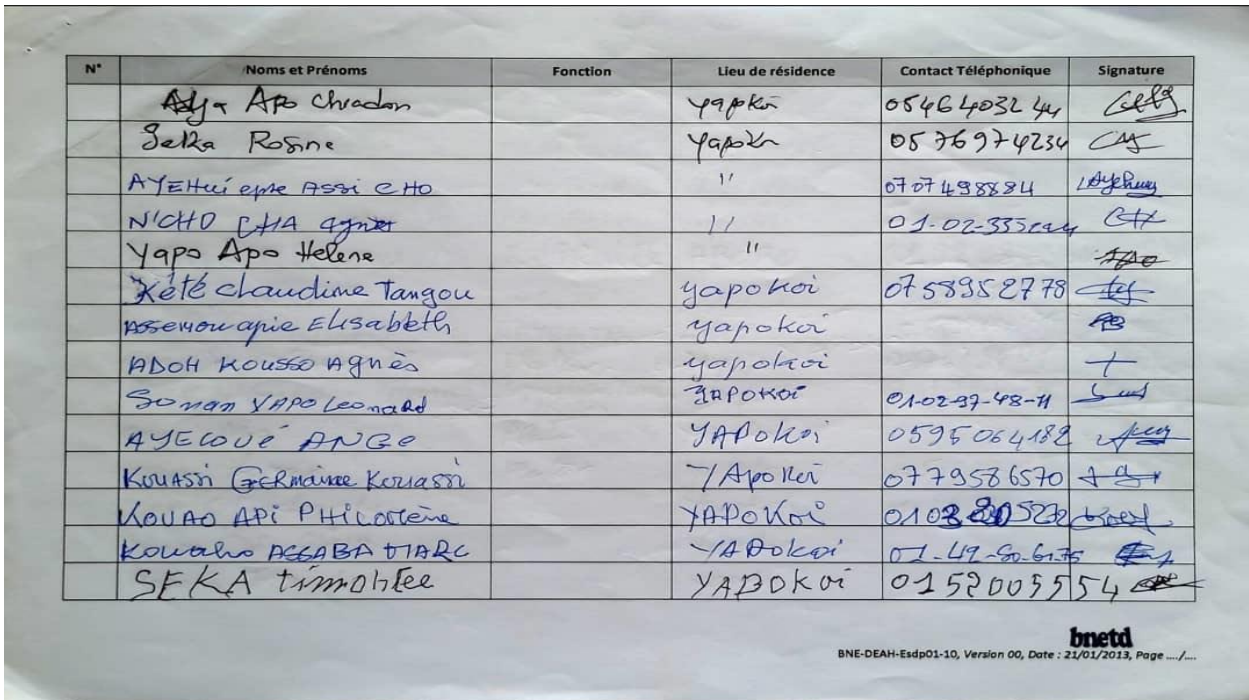 N° Noms et Prénoms Fonction Lieu de résidence Contact Téléphonique Signature
Apo Chiadon yapokoi 0546403244
Seka Rosine Yapoko 0576974234
AYEHUi epse ASSi CHO " 0707498884
N'CHO CHA Agnes " 01-02-335
Yapo Apo Helene "
Kété claudine Tangou yapokoi 0758952778
ASSEMOU apie Elisabeth yapokoi
ADOH KOUSSO Agnès yapokoi
Soman YAPO Leonard YAPOKOi 01-02-97-48-11
AYECOUÉ ANGE YAPOKOi 0595064182
KOUASSi GERmaine Kouassi YApoKoi 0779586570
KOUAO APi PHiLOMène YAPOKoi
Kouaho ASSABA MARC YAPOkoi 01-42-50-61-75
SEKA timohtee YAPOKOi 0152005554
bnetd
BNE-DEAH-Esdp01-10, Version 00, Date : 21/01/2013, Page ..../....